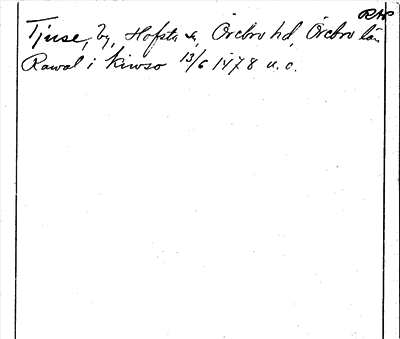 RAP
Tjuse, by, Hofsta sn, Örebro hd, Örebro län
Rawal i kiwso 13/6 1478 u.o.